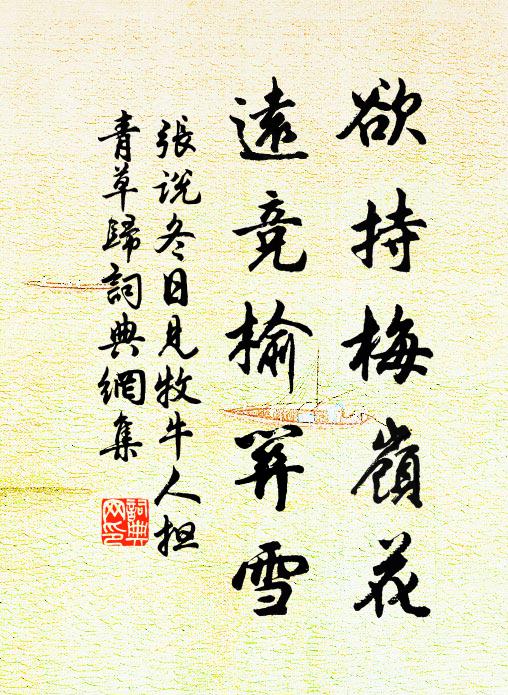 欲持梅嶺花
遠競榆關雪
張說冬日見牧牛人担
青草歸詞典網集
詞典
网印